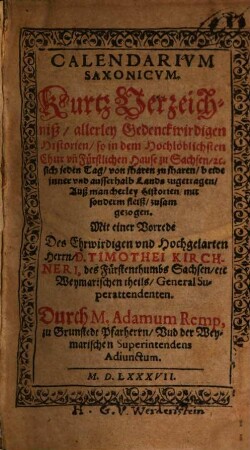 CALENDARIVM
SAXONICVM.
Kurtz Verzeich-
niß / allerley Gedenckwirdigen
Historien / so in dem Hochlöblichsten
Chur vnd Fürstlichen Hause zu Sachsen / ec.
sich jeden Tag / von Jharen zu Jharen / beide
inner vnd ausserhalb Lands zugetragen /
Auß mancherley Historien mit
sonderm fleiß / zusam
gezogen.
Mit einer Vorrede
Des Ehrwirdigen vnd Hochgelarten
Herrn / D. TIMOTHEI KIRCH-
NERI, des Fürstenthumbs Sachsen / etc
Weymarischen theils / General Su-
perattendenten.
Durch M. Adamum Remp,
zu Grunstede Pfarherrn / Vnd der Wey-
marischen Superintendens
Adiunctum.
M. D. LXXXVII.
H. G. V. Werdenstein